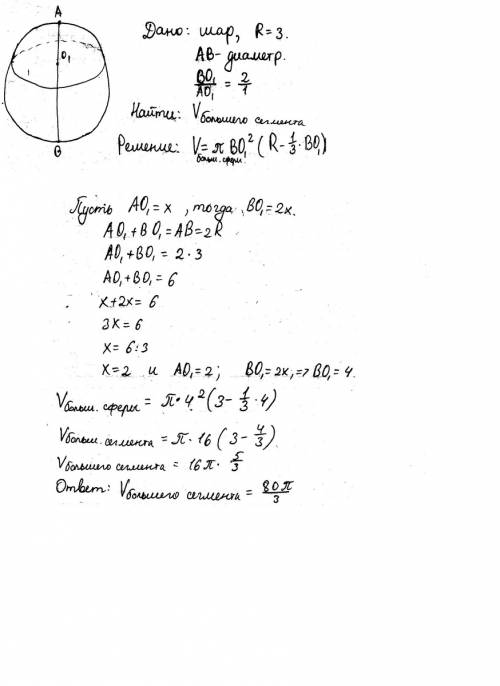 A
O₁
B
Дано: шар, R=3.
AB - диаметр.
BO₁/AO₁ = 2/1
Найти: V большего сегмента
Решение: V = π BO₁² (R - 1/3 · BO₁)
больш. сферы
Пусть AO₁ = x, тогда BO₁ = 2x.
AO₁ + BO₁ = AB = 2R
AO₁ + BO₁ = 2 · 3
AO₁ + BO₁ = 6
x + 2x = 6
3x = 6
x = 6 : 3
x = 2 и AO₁ = 2; BO₁ = 2x, => BO₁ = 4.
V больш. сферы = π · 4² (3 - 1/3 · 4)
V больш. сегмента = π · 16 (3 - 4/3)
V большего сегмента = 16π · 5/3
Ответ: V большего сегмента = 80π/3